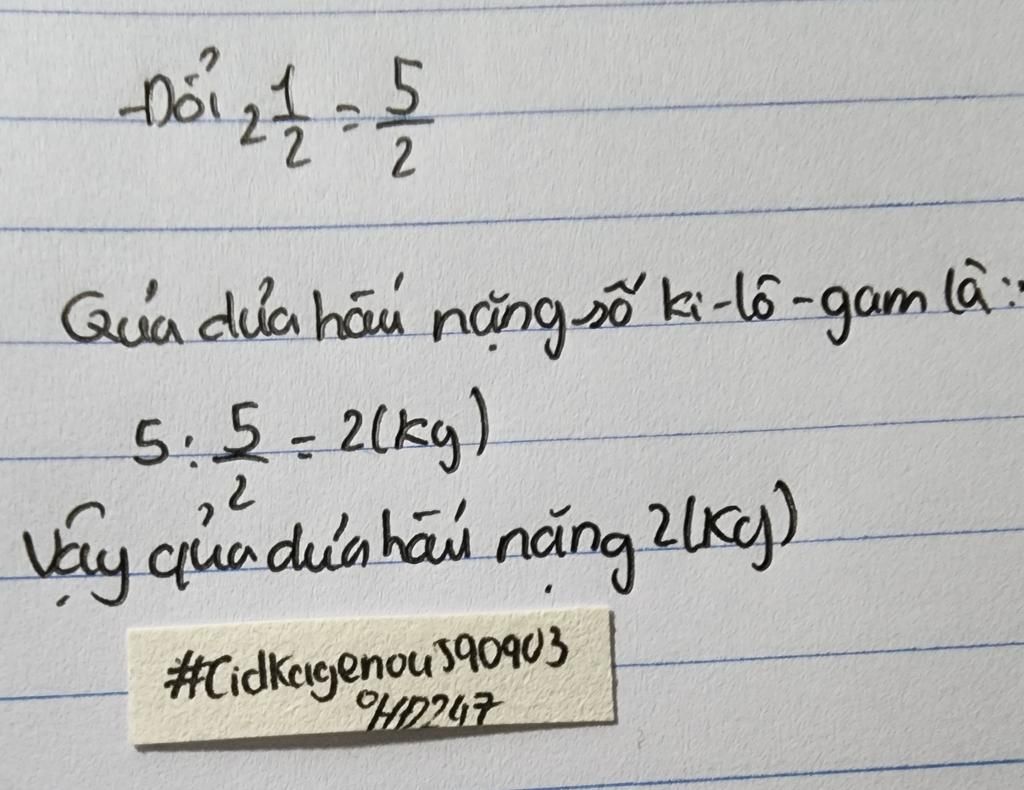 Đổi 2 1/2 = 5/2
Qủa dưa hấu nặng số ki-lô-gam là:
5 : 5/2 = 2(kg)
Vậy quả dưa hấu nặng 2(kg)
#CidKagenou590903
HD247